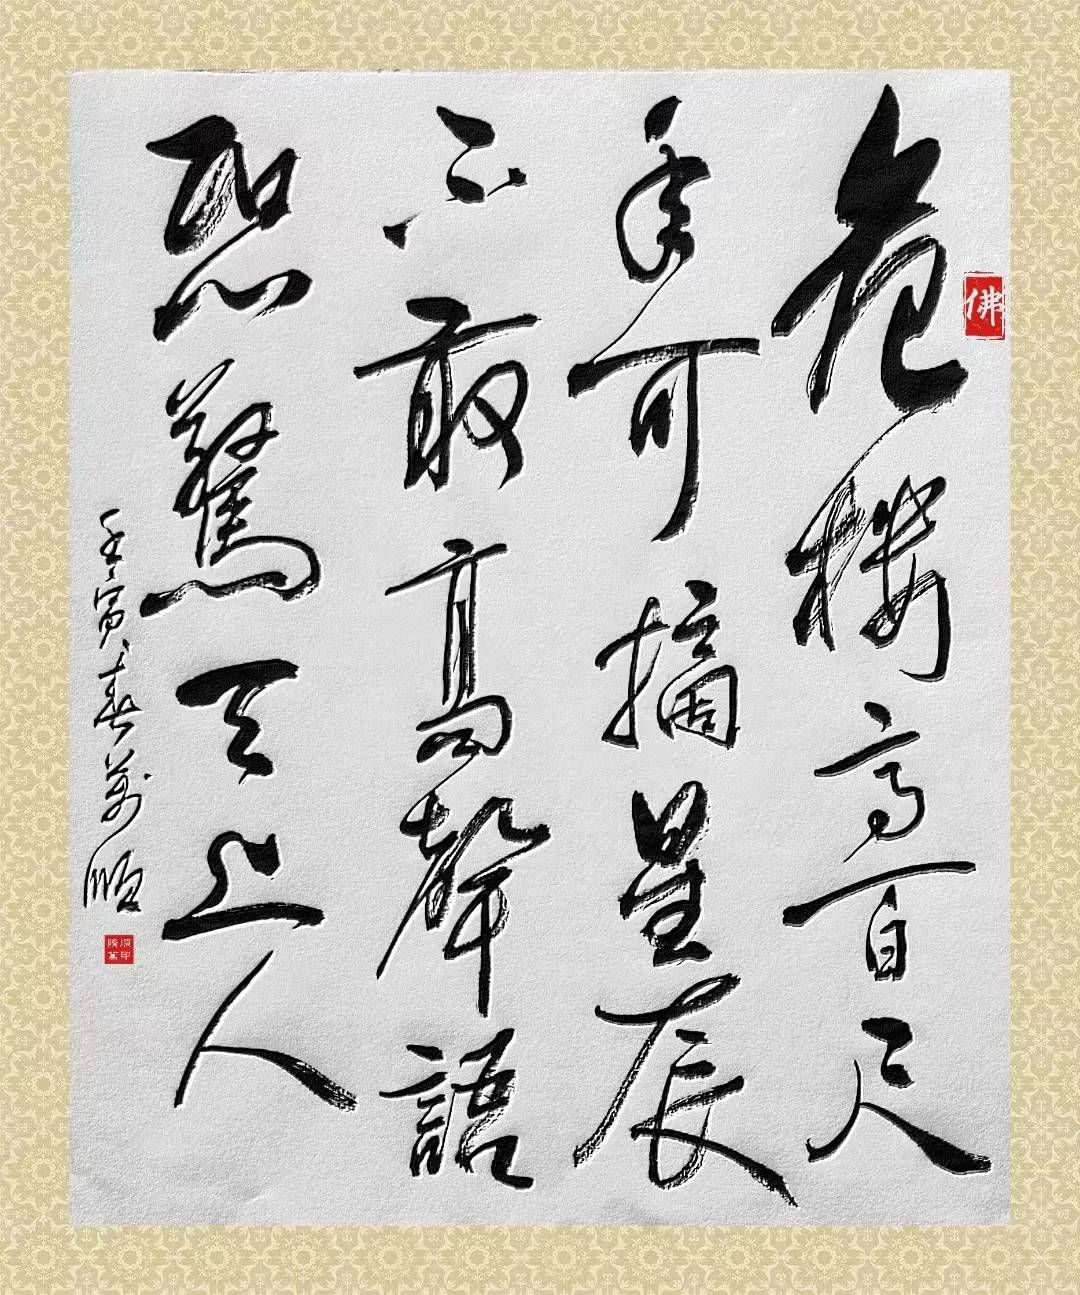 危樓高百尺
手可摘星辰
不敢高聲語
恐驚天上人
壬寅春萬順
佛